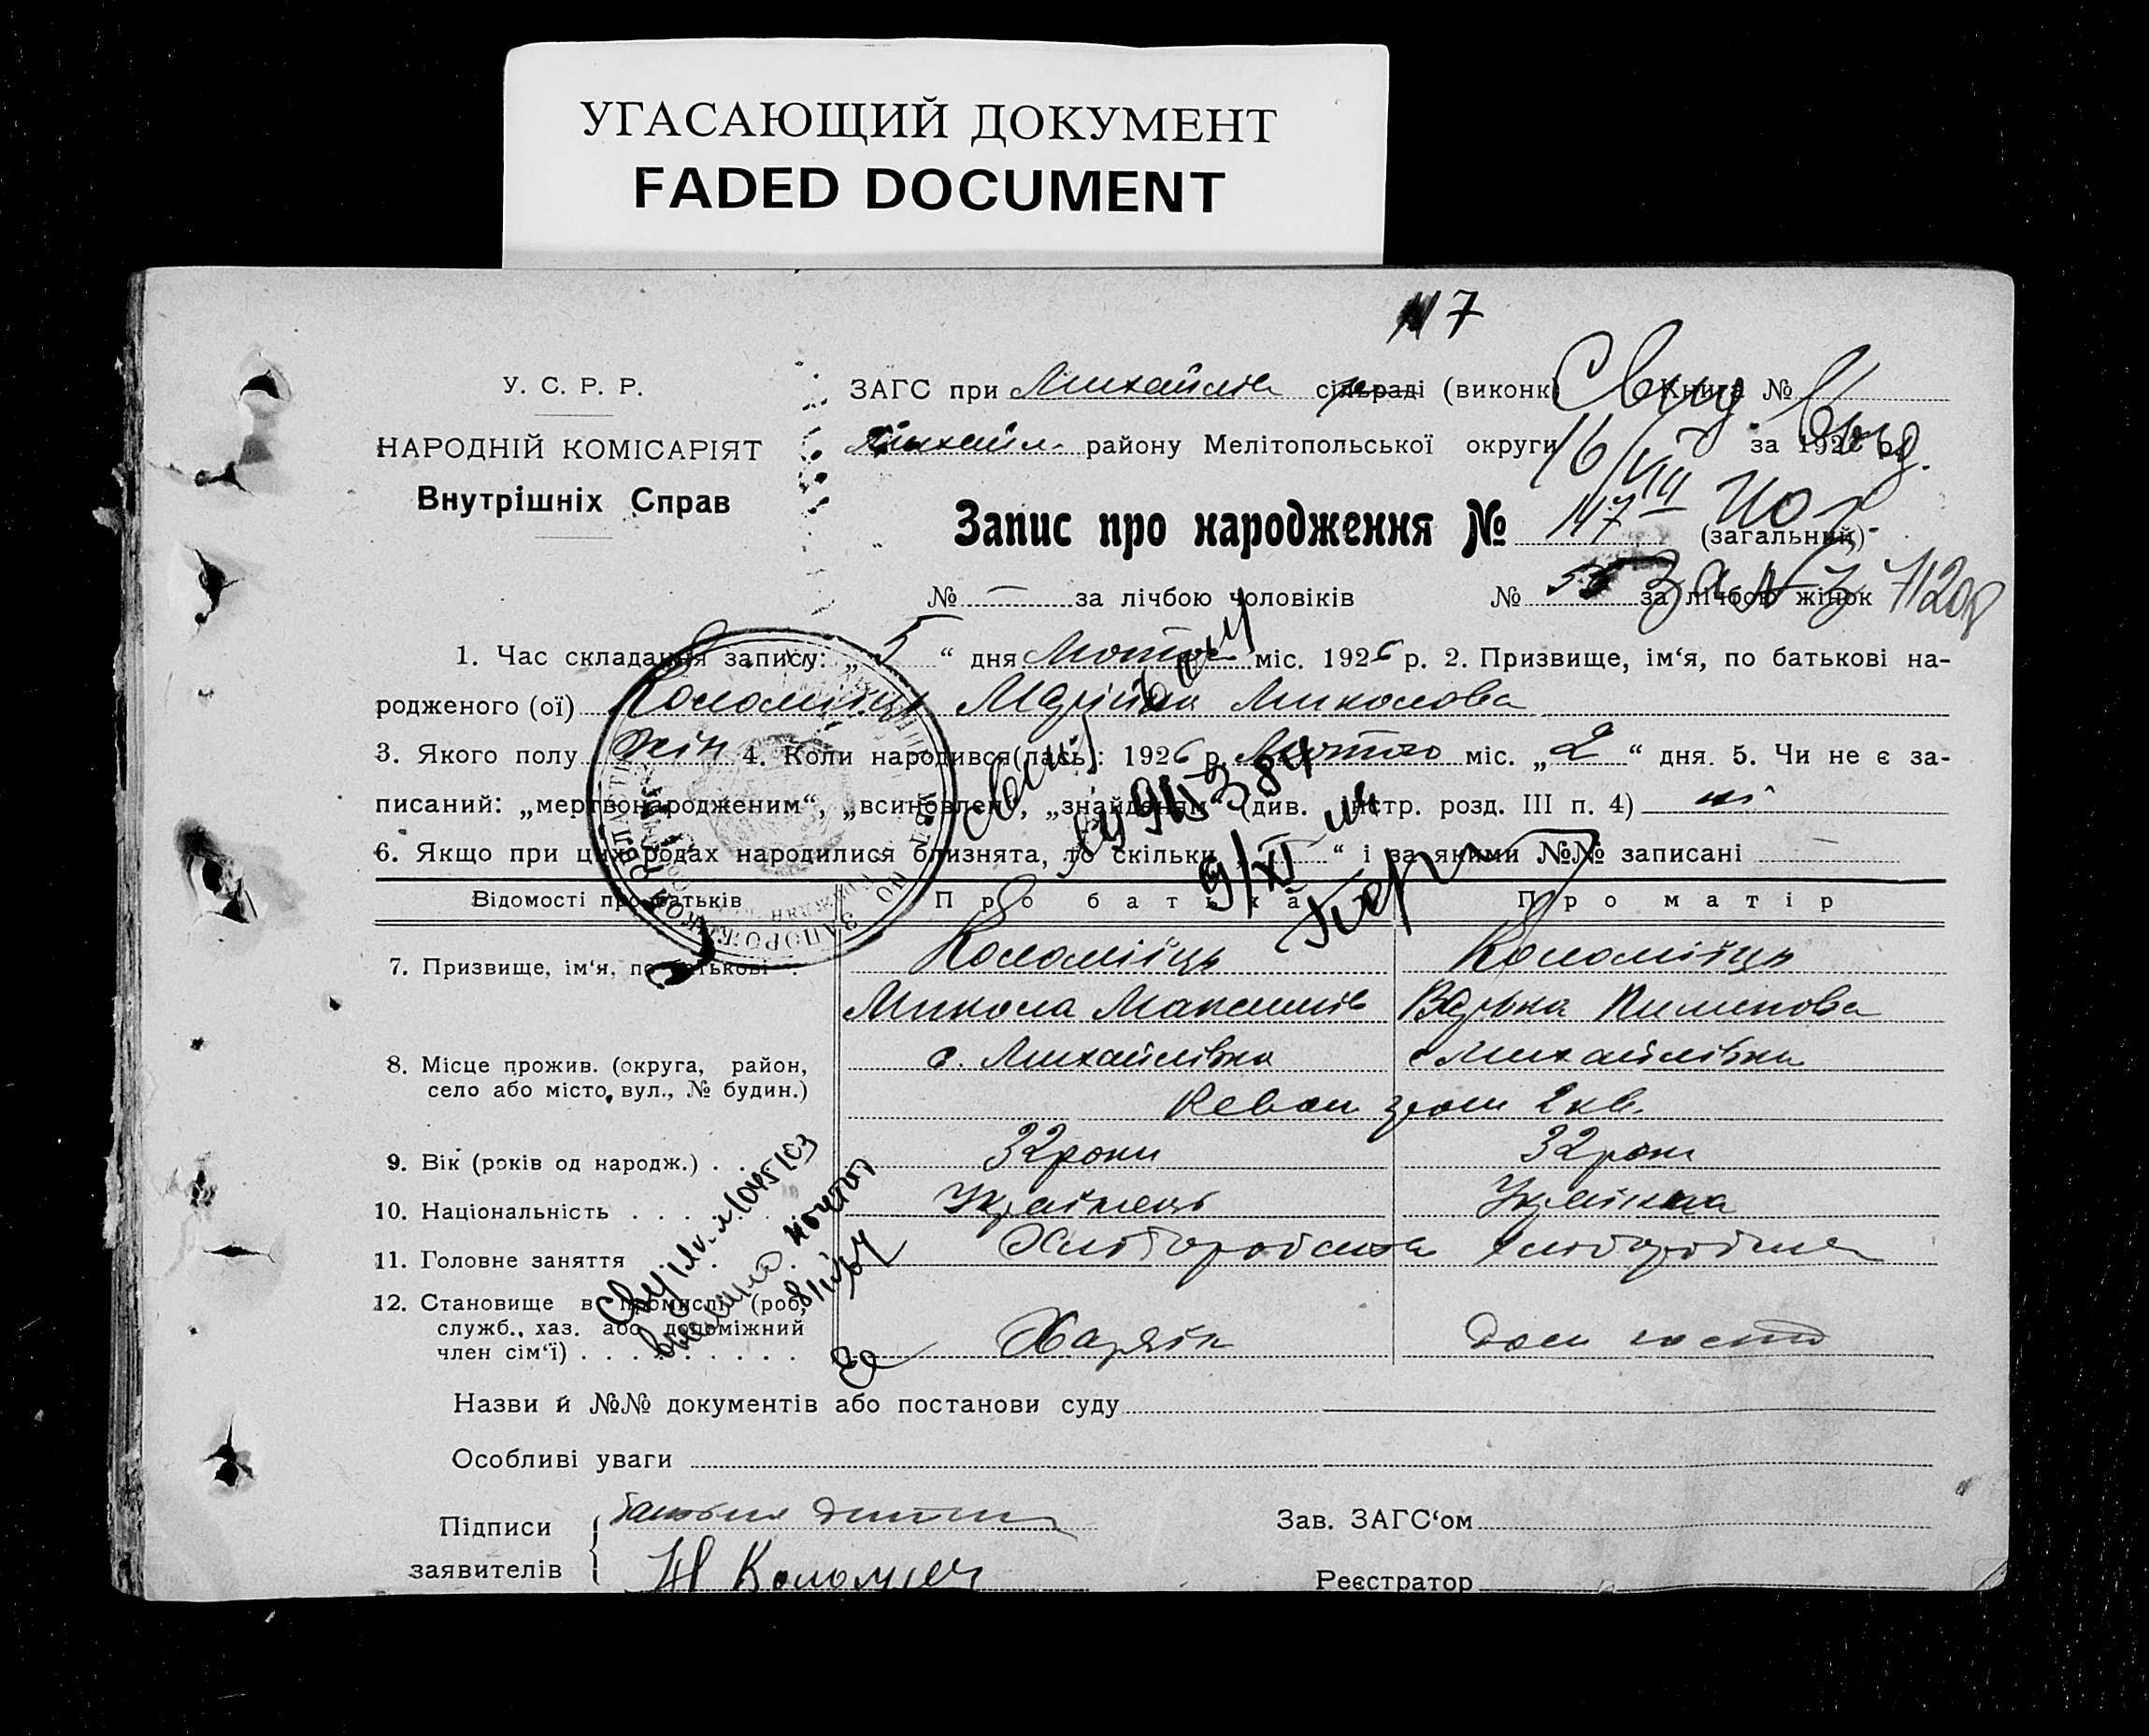 УГАСАЮЩИЙ ДОКУМЕНТ
FADED DOCUMENT
117
У. С. Р. Р.
НАРОДНІЙ КОМІСАРІЯТ
Внутрішніх Справ
ЗАГС при Михайлів сільраді (виконк) Книга №
Михайл. району Мелітопольської округи за 1926 р.
16/VIII
Запис про народження № 117 (загальний)
№ — за лічбою чоловіків № 55 за лічбою жінок
1. Час складання запису: „5“ дня Лютого міс. 1926 р. 2. Призвище, ім‘я, по батькові на-
родженого (ої) Коломієць Марійка Миколова
3. Якого полу жін 4. Коли народився (лась): 1926 р. Лютого міс. „2“ дня. 5. Чи не є за-
писаний: „мертвонародженим“, „всиновлен“, „знайденим“ (див. інстр. розд. III п. 4) ні
6. Якщо при цих родах народилися близнята, то скільки „ “ і за якими №№ записані —
Відомості про батьків Про батька Про матір
7. Призвище, ім‘я, по батькові Коломієць Коломієць
Микола Максимів Варька Пименова
8. Місце прожив. (округа, район, с. Михайлівка с Михайлівка
село або місто, вул., № будин.) 2 кв.
9. Вік (років од народж.) 32 роки 32 роки
10. Національність Українець Українка
11. Головне заняття Хліборобство Хліборобство
12. Становище в промислі (роб,
служб., хаз. або допоміжний
член сім‘ї) Хазяїн
9/XI
Назви й №№ документів або постанови суду
Особливі уваги
Підписи
заявителів Коломиец
Зав. ЗАГС‘ом
Реєстратор